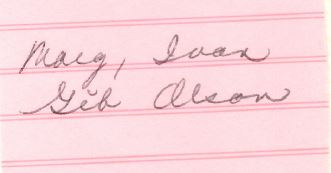 Marg, Ivan
Gib Olson